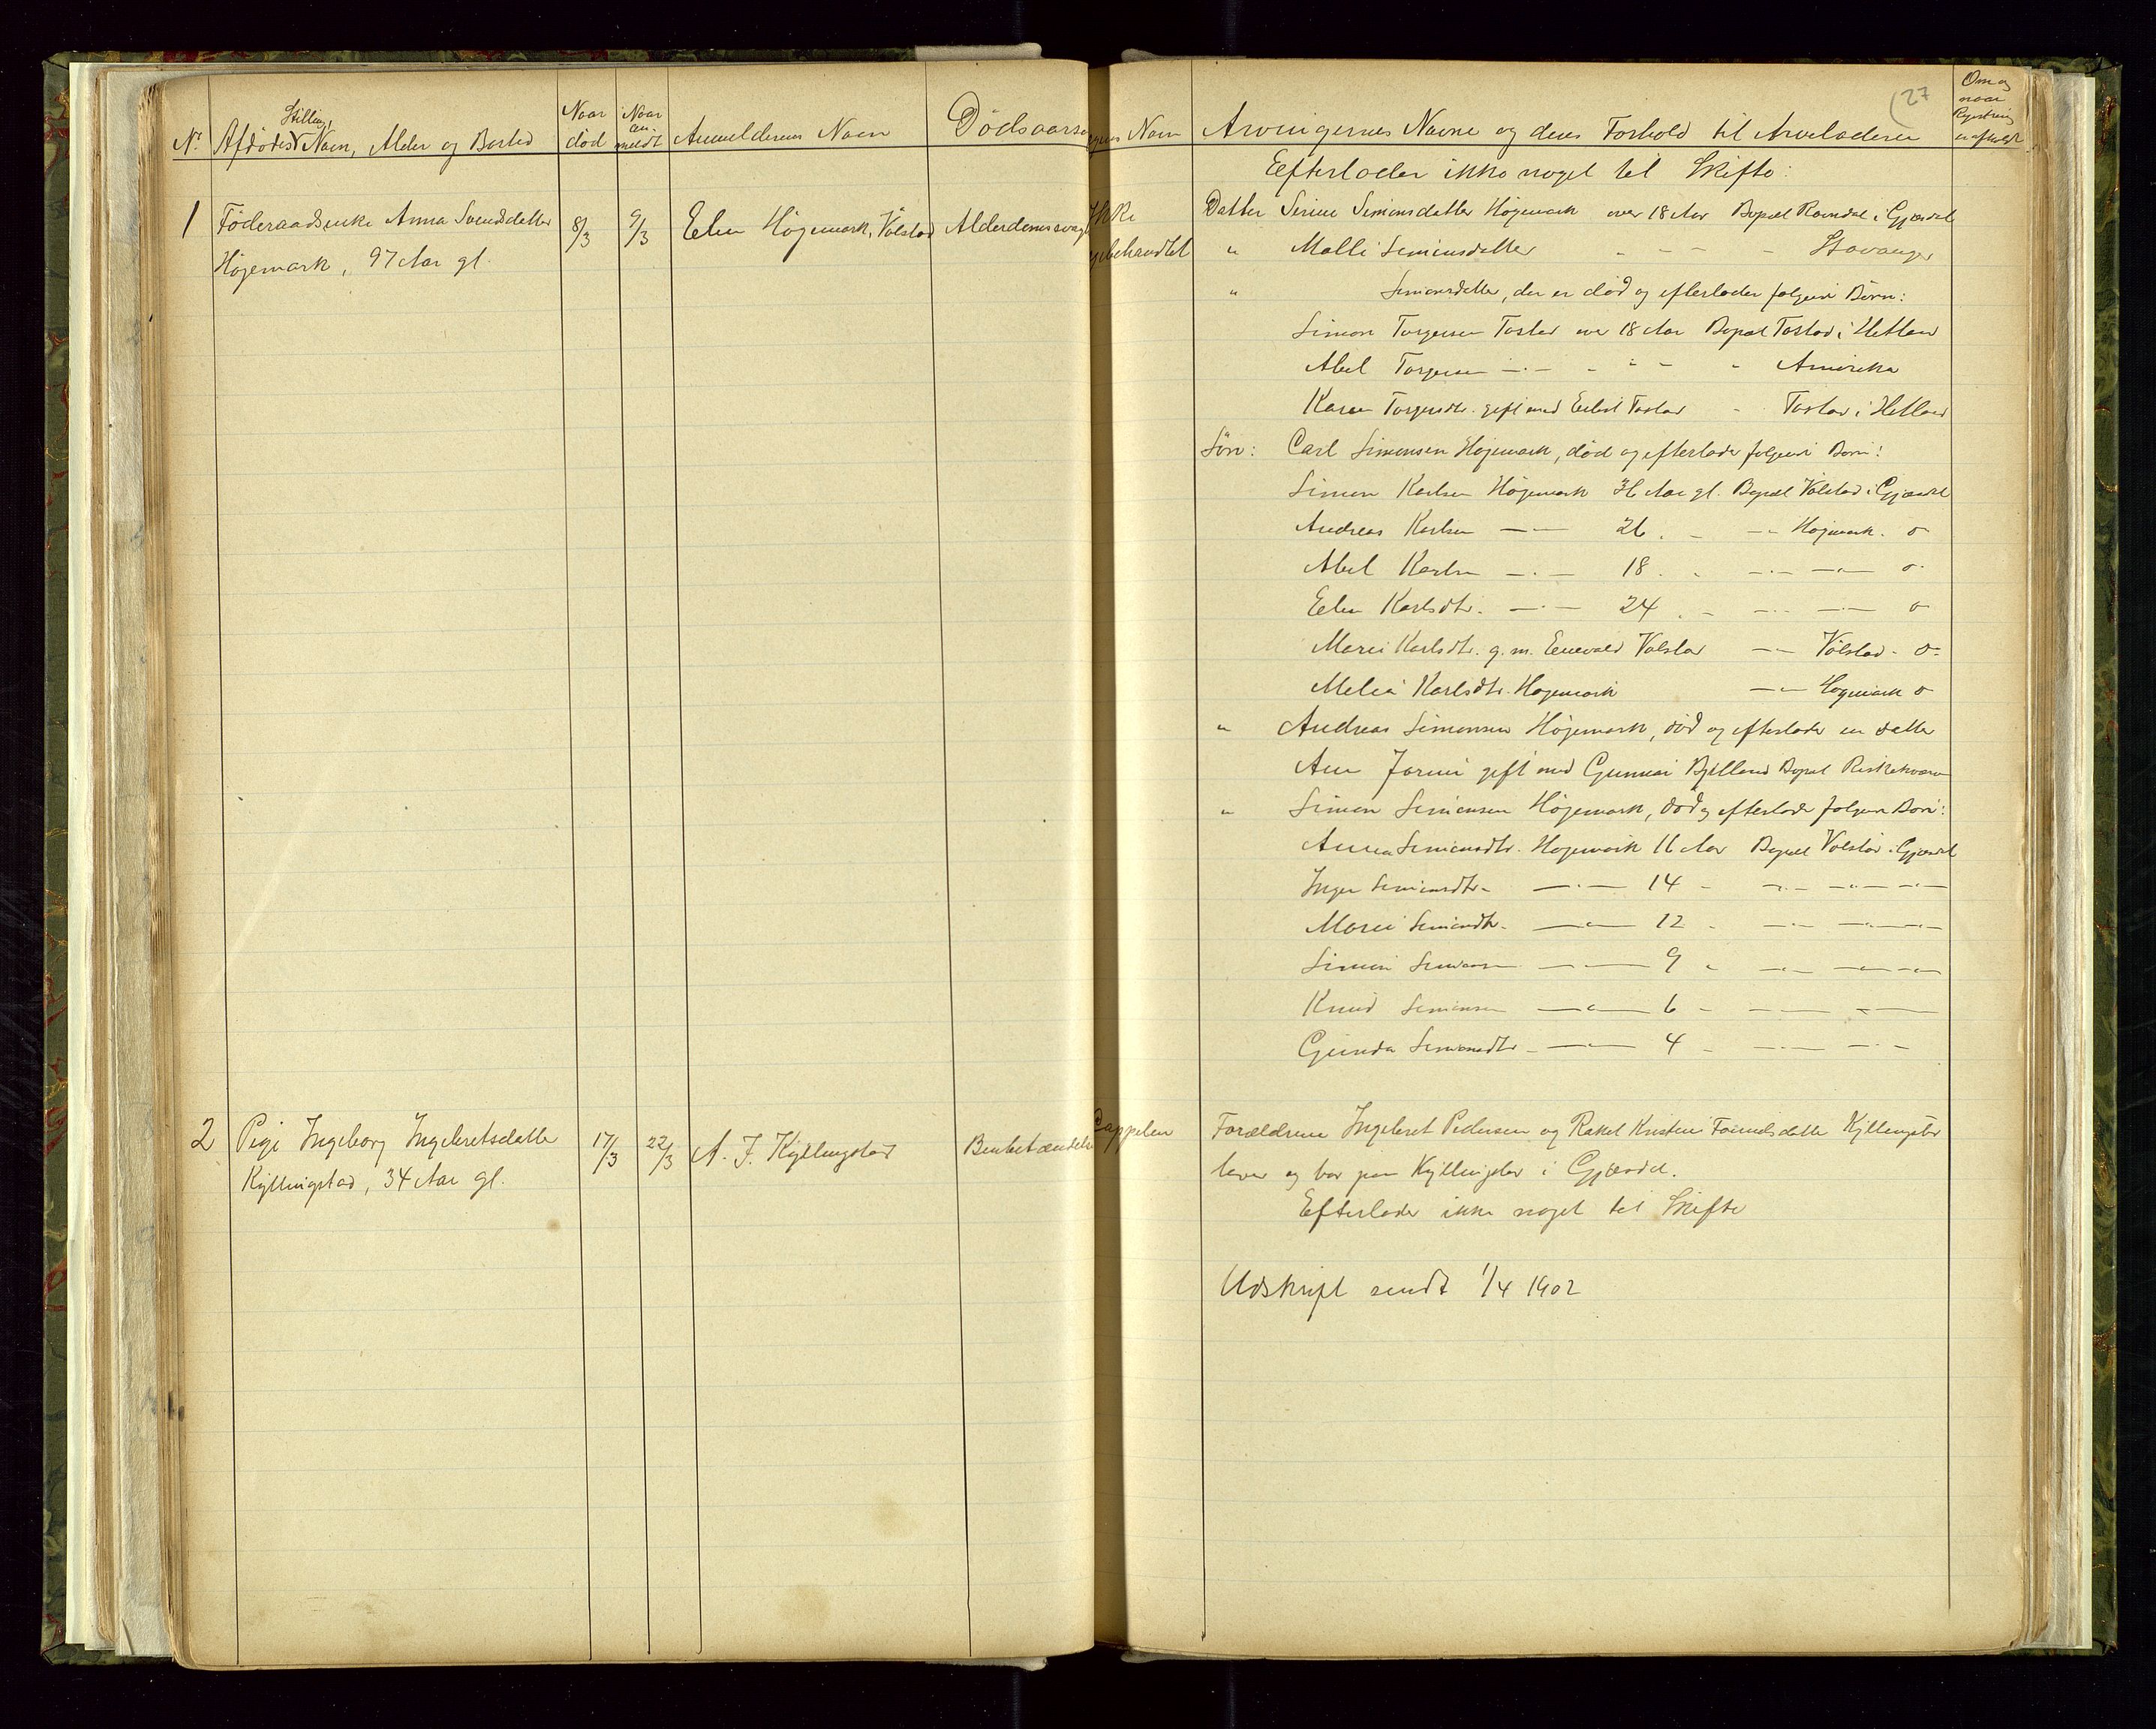 27
Nº Afdødes Stilling, Navn, Alder og Bosted
Naar død
Naar anmeldt
Anmelderens Navn
Dødsaarsa
Navn
Arvingernes Navne og deres Forhold til Arveladeren
Om og naar Registrering er afholdt
Efterlader ikke noget til Skifte:
1 Føderaadsenke Anna Svendsdatter
Højemark, 97 Aar gl.
8/3
9/3
Elen Højemark, Vølstad
Alderdomssvag
Ikke
behandlet
Datter Serine Simonsdatter Højemark over 18 Aar Bopæl Ravndal i Gjesdal
" Malli Simonsdatter - - - - Stavanger
" Simonsdatter, der er død og efterlader følgende Børn:
Simon Torgersen Tastad over 18 Aar Bopæl Tastad i Hetland
Abel Torgersen —·— - - - - Amerika
Karen Torgersdtr. gift med Tastad - Tastad i Hetland
Søn: Carl Simonsen Højemark, død og efterlader følgende Børn:
Simon Karlsen Højemark 36 Aar gl. Bopæl Vølstad i Gjesdal
Andreas Karlsen —— 26 . - —" Højmark . o
Abel Karlsen —·— 18 . - —·— —"— o
Elen Karlsdtr. —·— 24 . - —·· —·— o
Marie Karlsdtr. g. m. Enevald Vølstad —" Vølstad - o
Melia Karlsdtr. Højemark —"— Højemark o
" Andreas Simonsen Højemark, død og efterlader en datter
Ane gift med Gunnar Bjelland Bopæl
" Simon Simonsen Højemark, død og efterlader følgende Børn:
Anna Simonsdtr. Højemark 16 Aar Bopæl Vølstad i Gjesdal
Inger Simonsdtr. —·— 14 - —·— —"— —"—
Marie Simonsdtr. —"— 12 - —·— —"—
Simon Simonsen —"— 9 " —"— —"—
Knud Simonsen —"— 6 - —— ——
Gunda Simonsdtr. —"— 4 - —·— —·—
2 Pegi Ingeborg Ingebretsdatter
Kyllingstad, 34 Aar gl.
17/3
22/3
A. J. Kyllingstad
Benbetændelse
Cappelen
Forældrene Ingebret Pedersen og Rakel Kristine Kyllingstad
lever og bor paa Kyllingstad i Gjesdal.
Efterlader ikke noget til Skifte
Udskrift sendt 1/4 1902